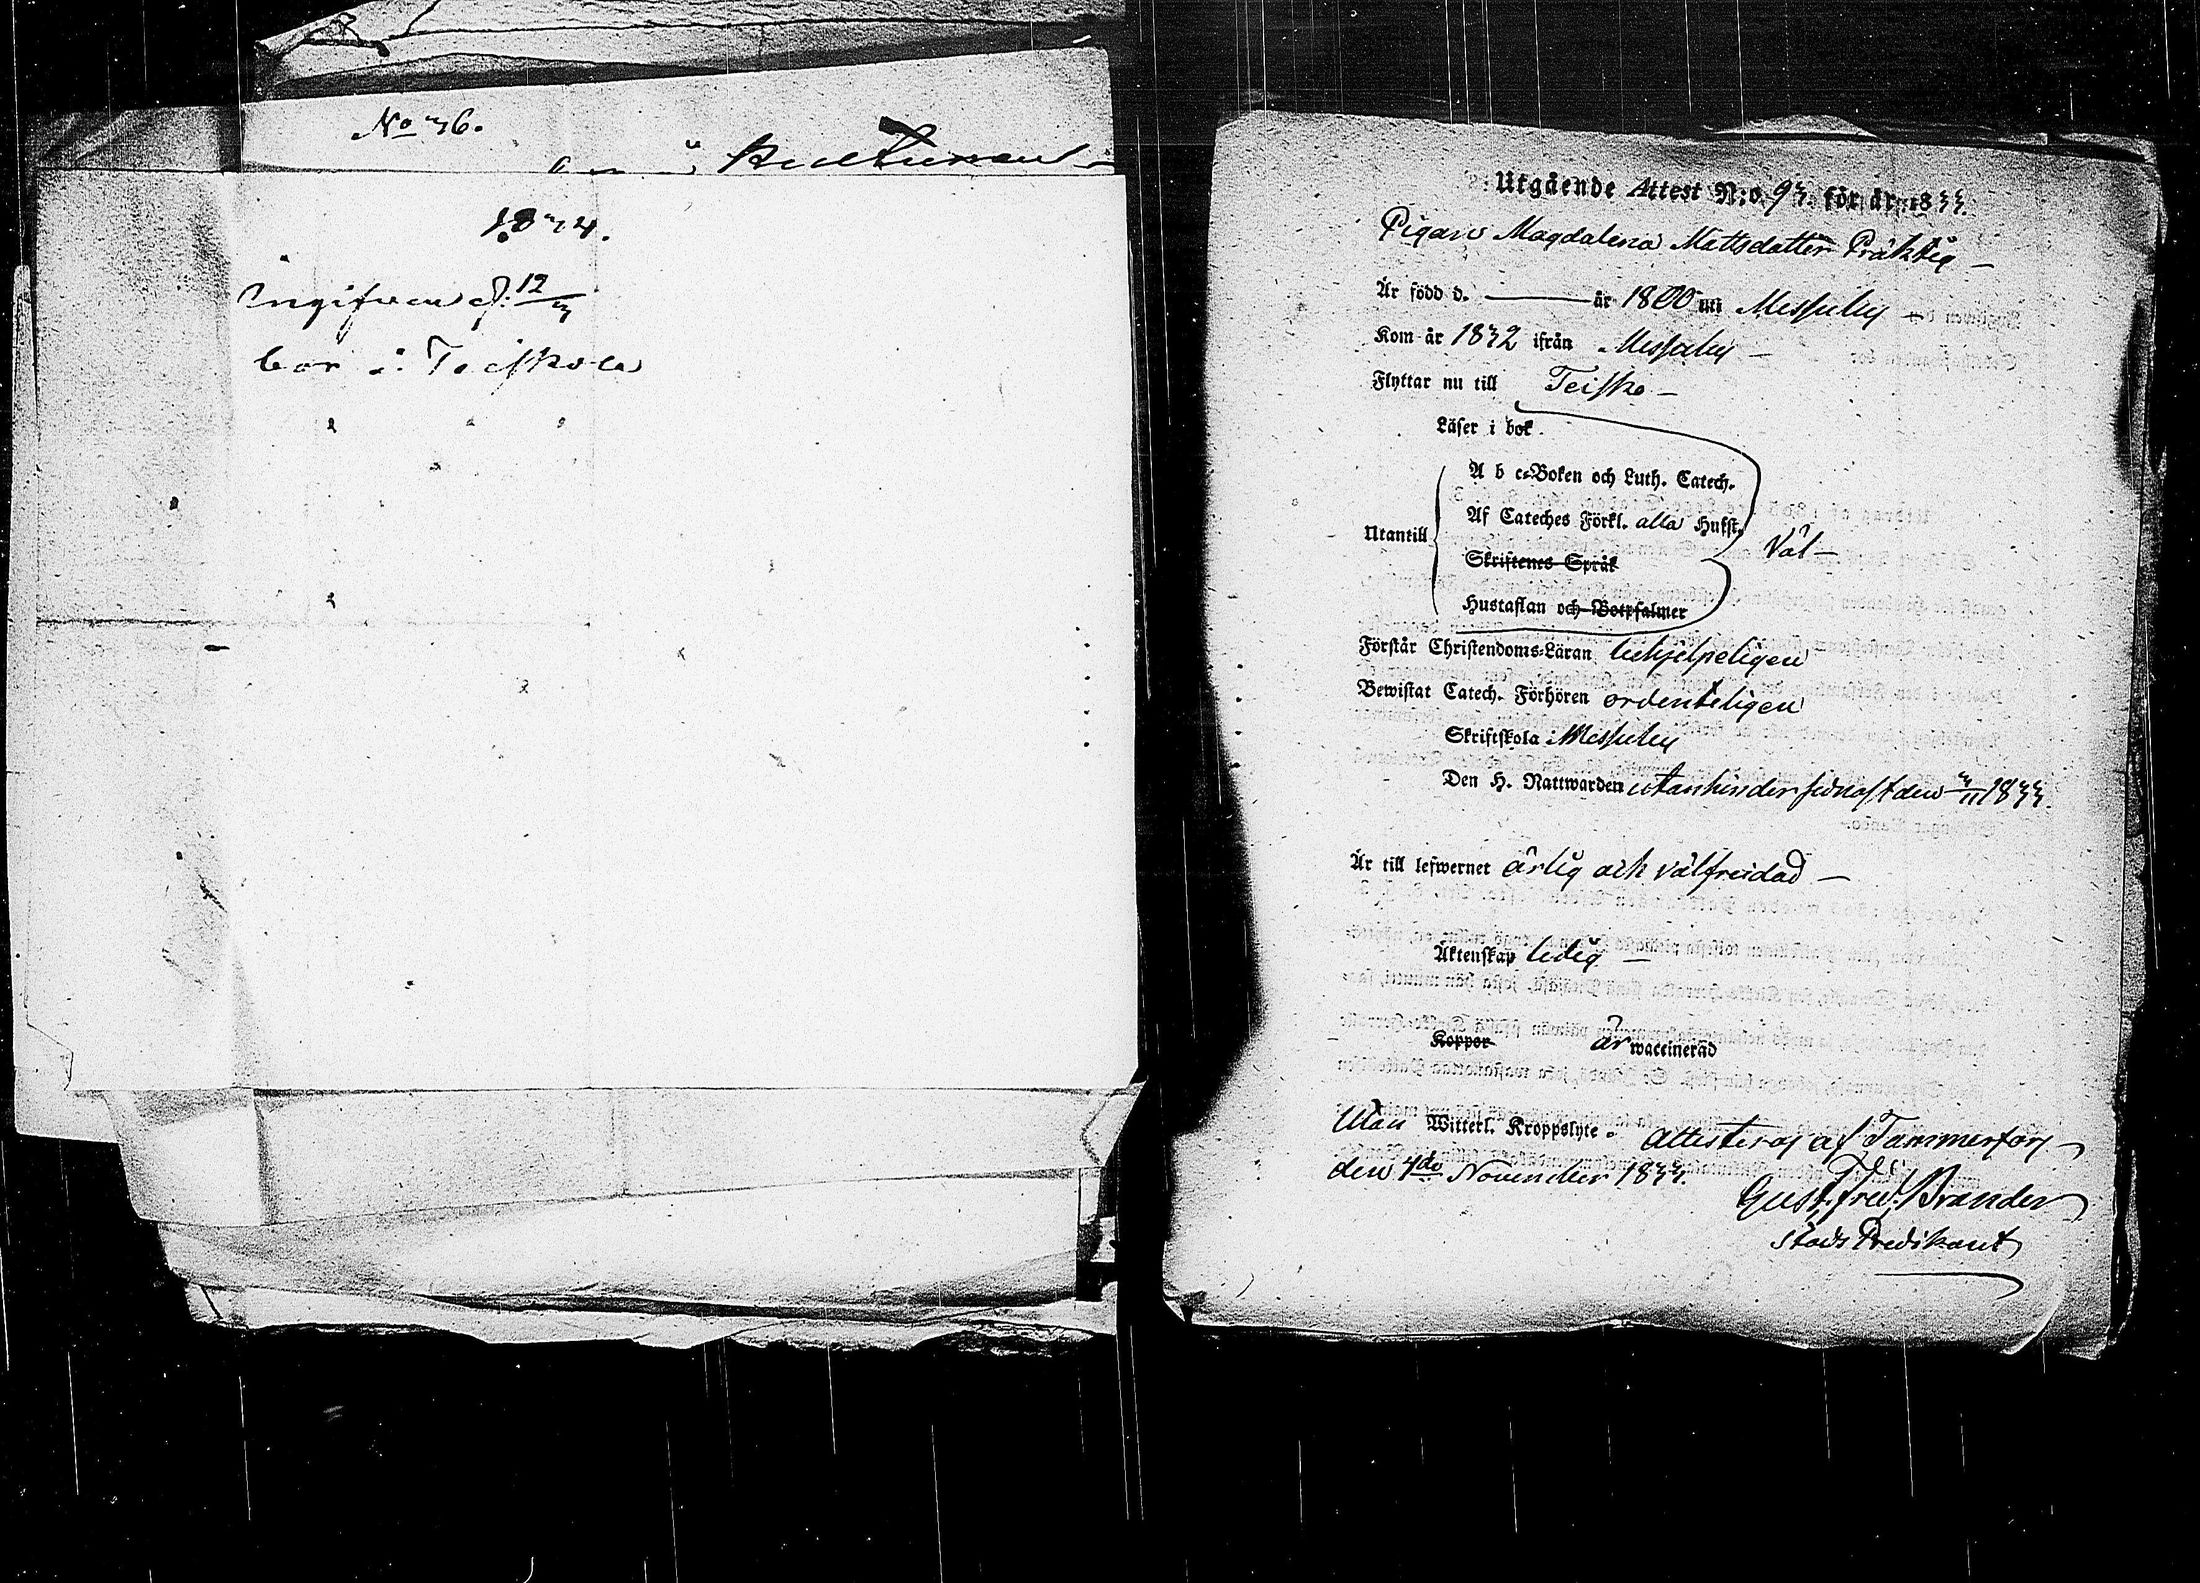 No 36.
1834.
Ingifven d. 12/3
bor i Teiskola
Utgående Attest N:o 93. för år 1833.
Pigan Magdalena Mattsdotter Präktig —
Är född d. ——— år 1800 uti Messuby —
Kom år 1832 ifrån Messuby —
Flyttar nu till Teisko —
Läser i bok
A b c-Boken och Luth. Catech.
Af Cateches Förkl. alla Hufst.
Utantill
Väl —
Skriftenes Språk
Hustaflan och Botpsalmer
Förstår Christendoms-Läran behjelpeligen
Bewistat Catech. Förhören ordenteligen
Skriftskola i Messuby
Den H. Nattwarden utan hinder sidnast den 3/11 1833.
Är till lefwernet ärlig och välfreidad —
Äktenskap ledig —
Koppor är waccinerad
Utan Witterl. Kroppslyte. Attesteras af Tammerfors
den 4de November 1833.
Gust. Fred. Brander
Stads Predikant